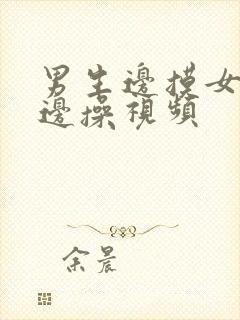 男生邊摸女
邊操視頻
余晨